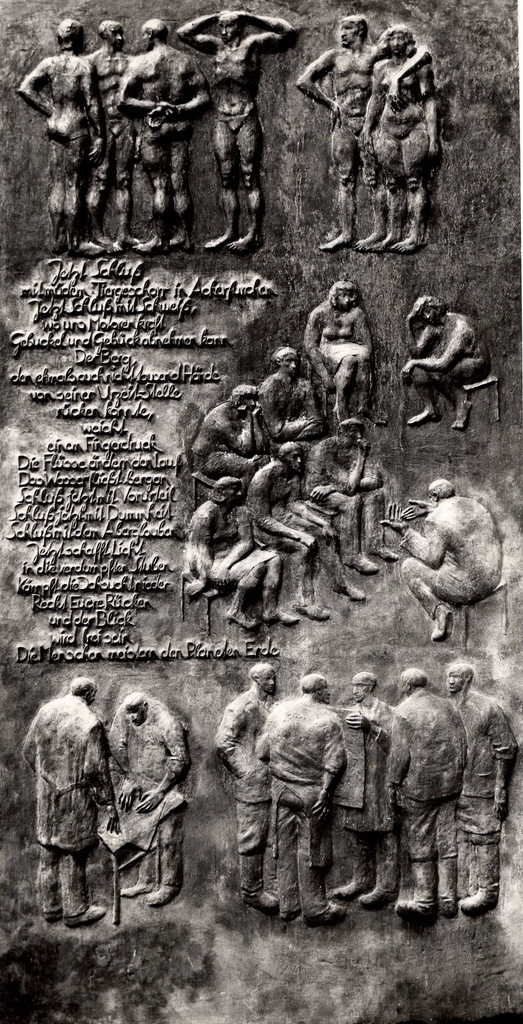 Jetzt Schluß
mit müden Tiergeschirr in Ackerfurchen
Jetzt Schluß mit Schweiß,
wo uns Motorenkraft
Gebuckel und Gebück abnehmen kann
Der Berg
den ehmals auch nicht
von seiner
rücken könnte,
weicht
einem Fingerdruck
Die Flüsse ändern den Lauf
Das Wasser flieht bergan
Schluß jetzt mit Vorurteil
Schluß jetzt mit Dummheit
Schluß mit den Aberglauben
Jetzt schafft Licht
in die verdumpften Stuben
Kämpft die Schwachheit nieder
Reckt Eure Rücken
und der Blick
wird frei sein
Die Menschen meistern den Planeten Erde